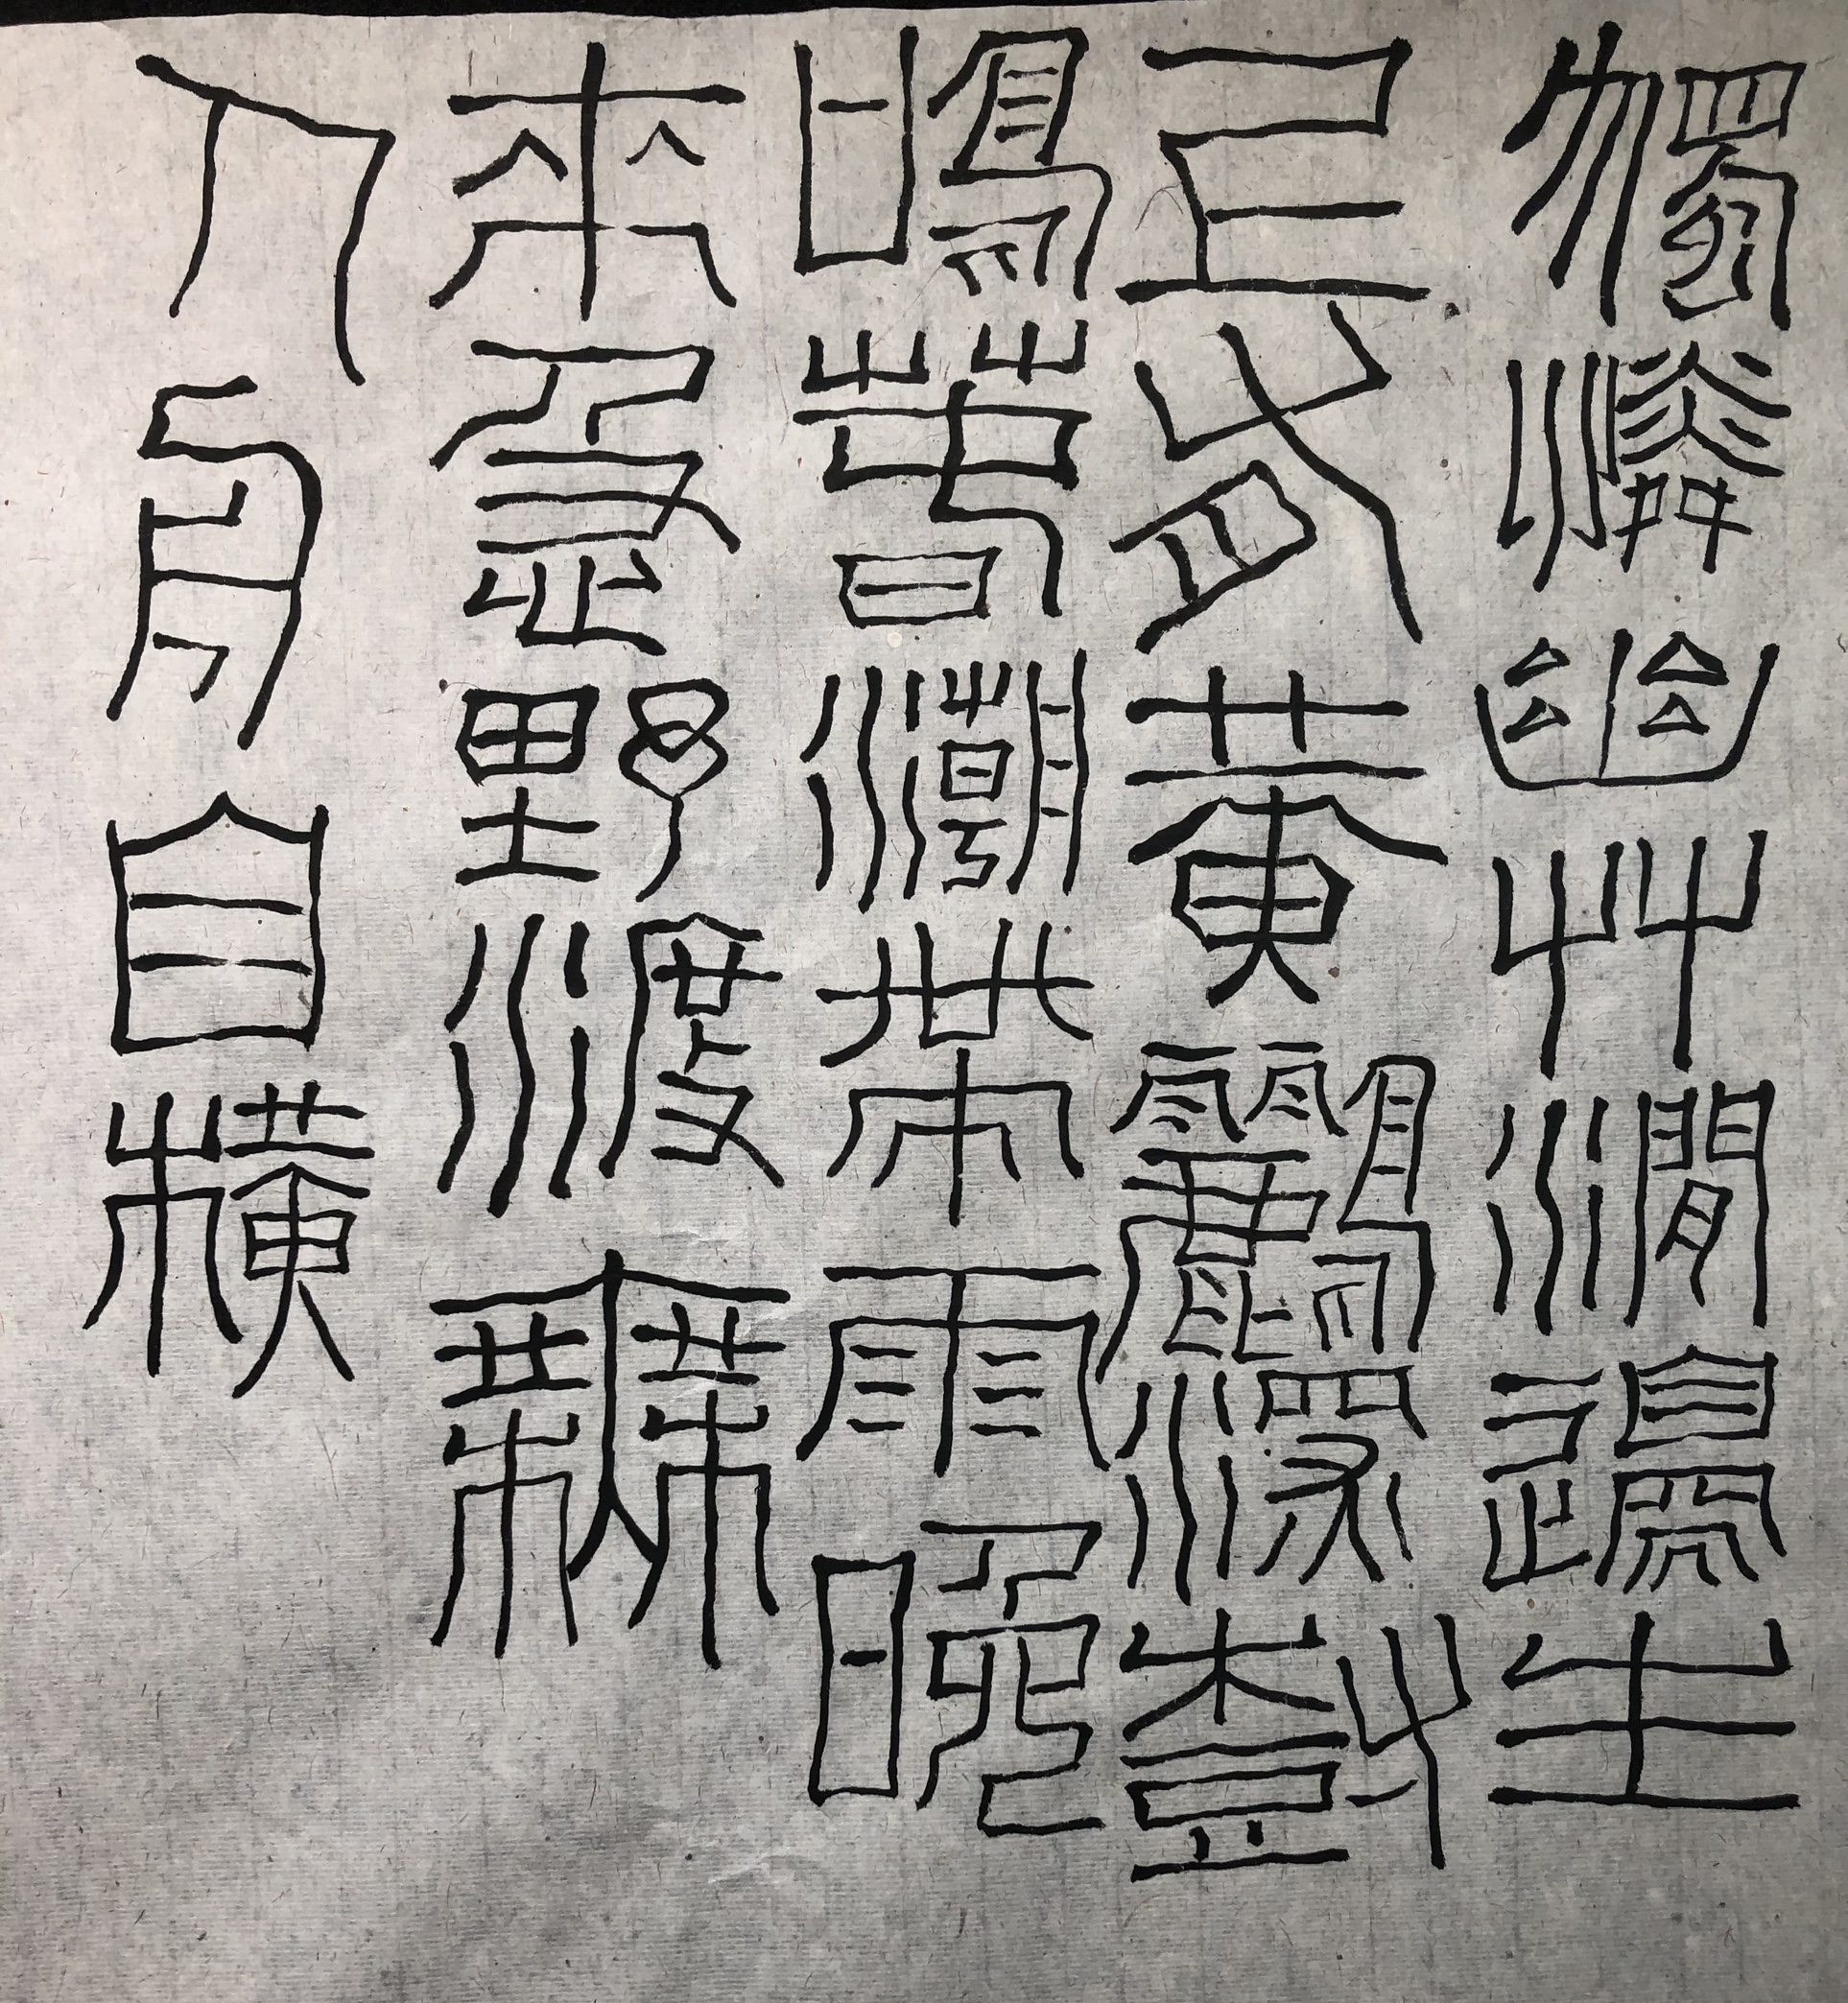 獨憐幽艸澗邊生
上有黃鸝深樹
鳴春潮帶雨晚
來急野渡無
人舟自橫